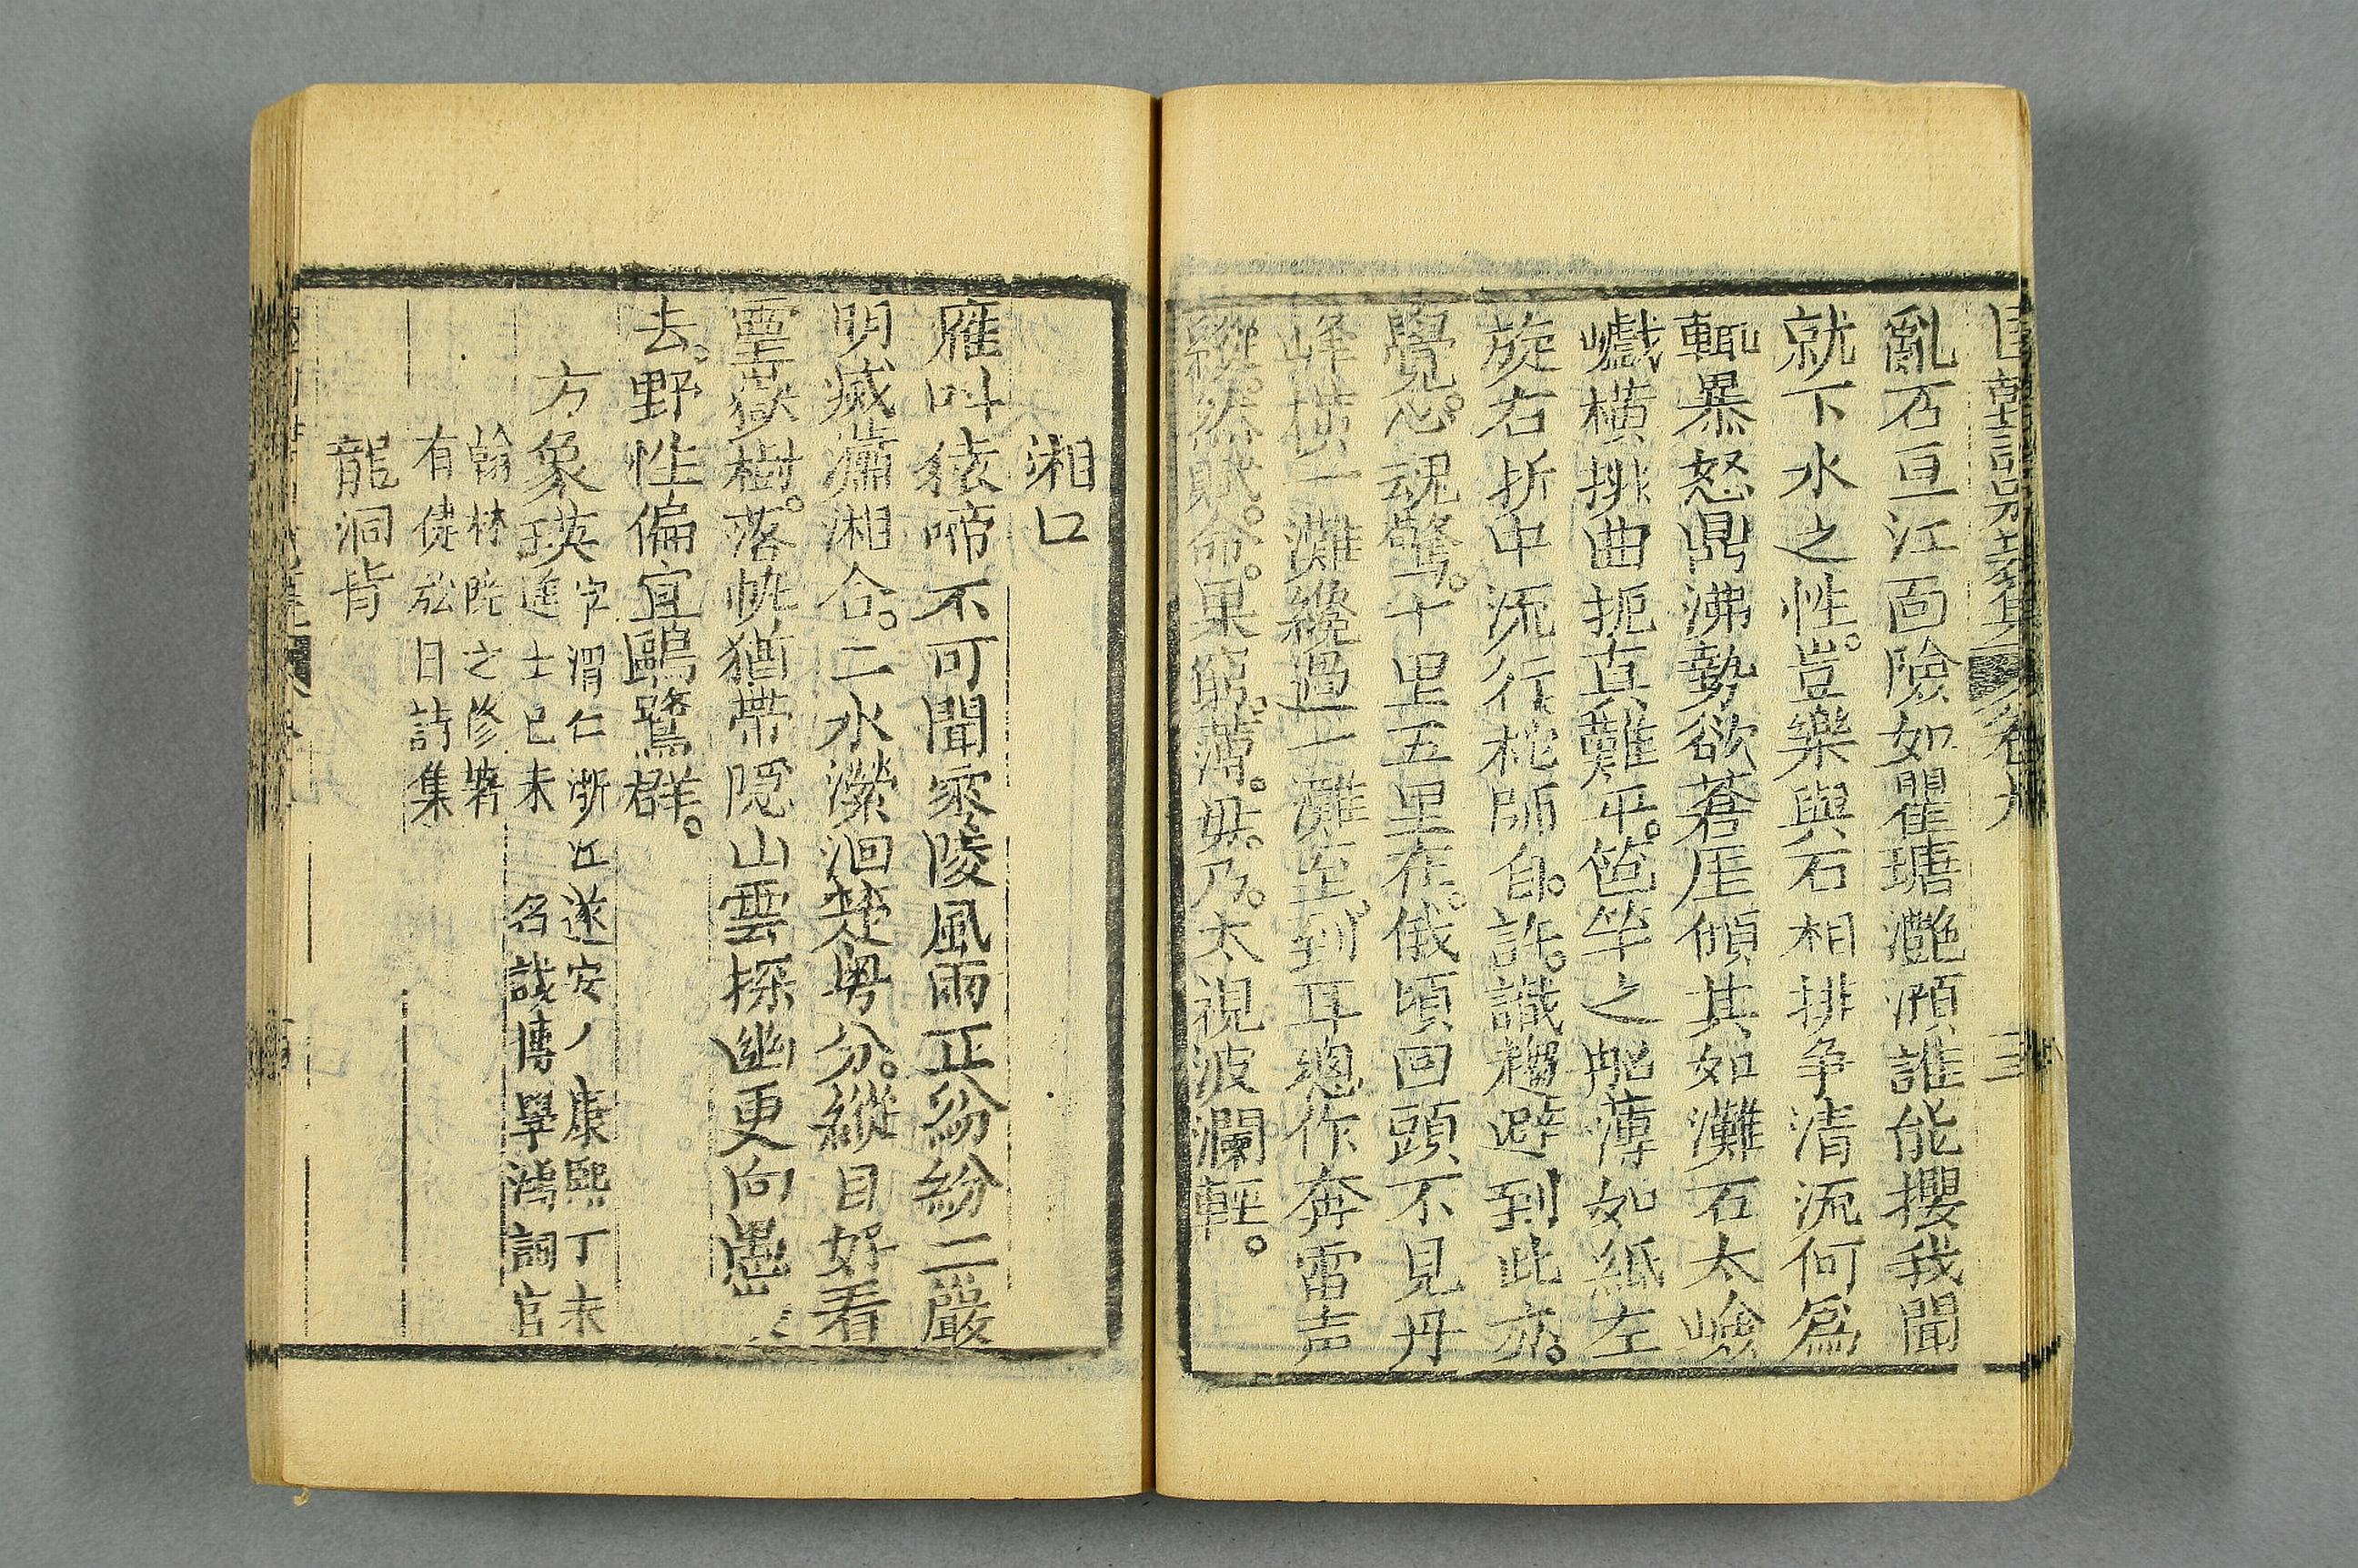 國朝詩別裁集 卷九 三
亂石亘江面險如瞿塘灧澦誰能攖我聞
就下水之性豈樂與石相排争清流何爲
輒暴怒鼎沸勢欲蒼厓傾其如灘石太嶮
巇横挑曲扼真難平笆竿之船薄如紙左
旋右折中流行柁師自許識趨避到此亦
覺心魂驚十里五里在俄頃回頭不見丹
峰横一灘纔過一灘至到耳總作奔雷声
縱然賦命果窮薄毋乃太視波瀾輕
湘口
雁叫猿啼不可聞零陵風雨正紛紛二嚴
明滅瀟湘合二水瀠洄楚粤分縱目好看
覃嶽樹落帆猶帶隠山雲探幽更向愚
去野性偏宜鷗鷺群
方象瑛字渭仁浙江遂安人康熙丁未
進士己未 名試博學鴻詞官
翰林院之修撰
有健松日詩集
龍洞背